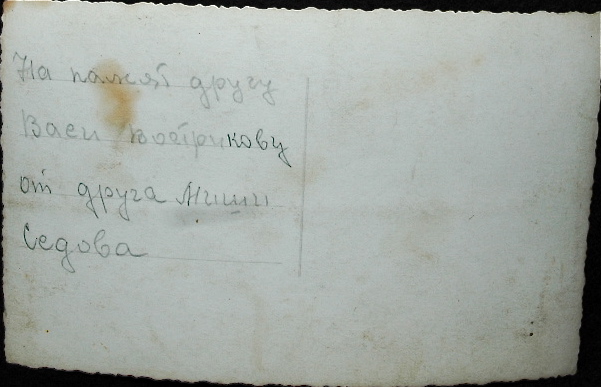 На памят другу
Васи Вострикову
от друга Миши
Седова